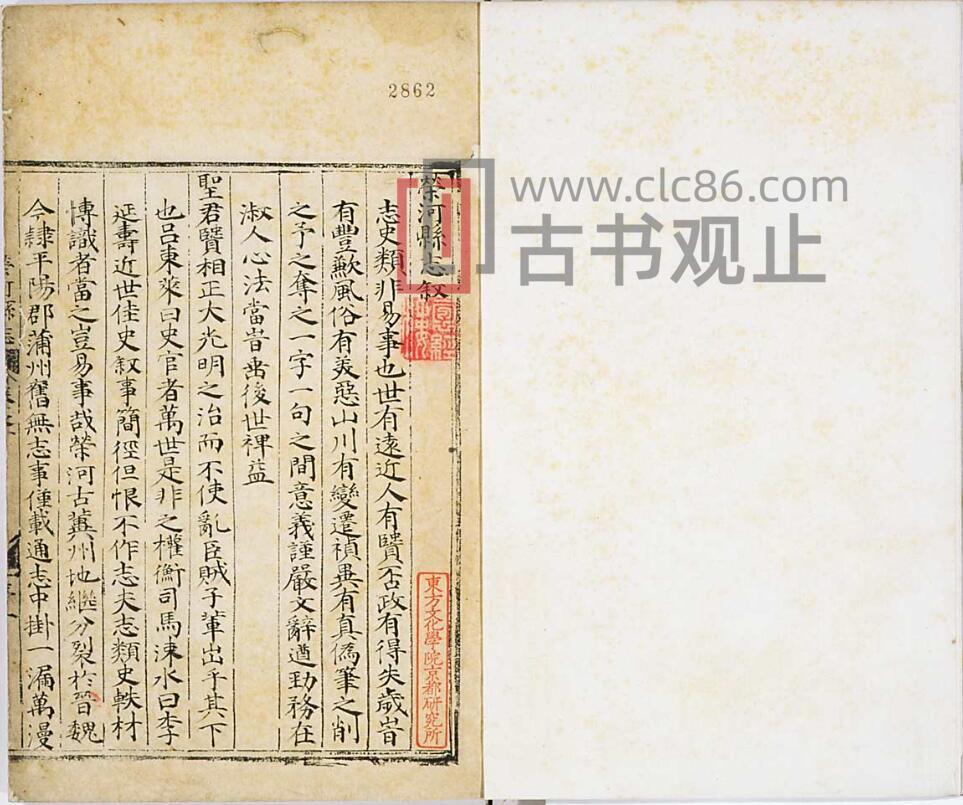 2862
www.clc86.com
古书观止
榮河縣志敘
志史類非易事也世有遠近人有賢否政有得失歲旹
有豐歉風俗有美惡山川有變遷禎異有真偽筆之削
之予之奪之一字一句之間意義謹嚴文辭遒勁務在
淑人心法當旹垂後世裨益
聖君賢相正大光明之治而不使亂臣賊子輩出乎其下
也呂東萊曰史官者萬世是非之權衡司馬涑水曰李
延壽近世佳史敘事簡徑但恨不作志夫志類史軼材
博識者當之豈易事哉榮河古冀州地繼分裂於晉魏
今隸平陽郡蒲州舊無志事僅載通志中掛一漏萬漫
東方文化學院京都研究所